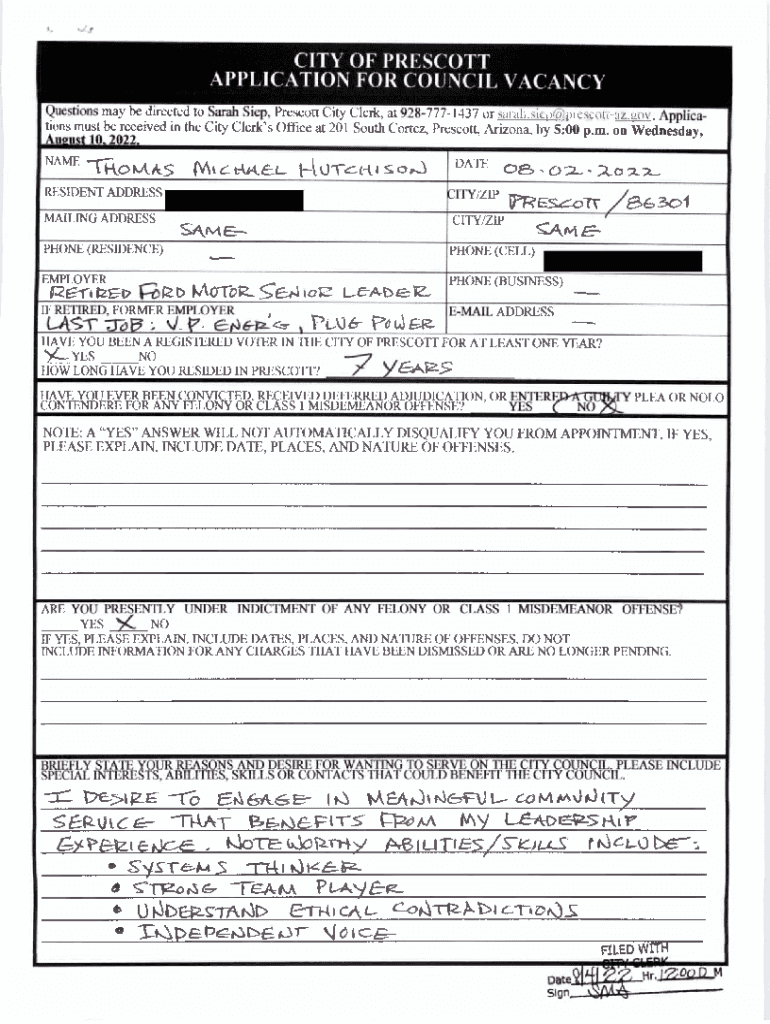 CITY OF PRESCOTT
APPLICATION FOR COUNCIL VACANCY
Questions may be directed to Sarah Siep, Prescott City Clerk, at 928-777-1437 or sarah.siep@prescott-az.gov. Applica-
tions must be received in the City Clerk's Office at 201 South Cortez, Prescott, Arizona, by 5:00 p.m. on Wednesday,
August 10, 2022.
NAME THOMAS MICHAEL HUTCHISON DATE 08.02.2022
RESIDENT ADDRESS CITY/ZIP PRESCOTT/86301
MAILING ADDRESS SAME CITY/ZIP SAME
PHONE (RESIDENCE) — PHONE (CELL)
EMPLOYER PHONE (BUSINESS) —
RETIRED FORD MOTOR SENIOR LEADER
IF RETIRED, FORMER EMPLOYER E-MAIL ADDRESS —
LAST JOB: V.P. ENGR'G, PLUG POWER
HAVE YOU BEEN A REGISTERED VOTER IN THE CITY OF PRESCOTT FOR AT LEAST ONE YEAR?
X YES NO
HOW LONG HAVE YOU RESIDED IN PRESCOTT? 7 YEARS
HAVE YOU EVER BEEN CONVICTED, RECEIVED DEFERRED ADJUDICATION, OR ENTERED A GUILTY PLEA OR NOLO
CONTENDERE FOR ANY FELONY OR CLASS 1 MISDEMEANOR OFFENSE? YES NO X
NOTE: A "YES" ANSWER WILL NOT AUTOMATICALLY DISQUALIFY YOU FROM APPOINTMENT. IF YES,
PLEASE EXPLAIN, INCLUDE DATE, PLACES, AND NATURE OF OFFENSES.
ARE YOU PRESENTLY UNDER INDICTMENT OF ANY FELONY OR CLASS 1 MISDEMEANOR OFFENSE?
YES X NO
IF YES, PLEASE EXPLAIN, INCLUDE DATES, PLACES, AND NATURE OF OFFENSES. DO NOT
INCLUDE INFORMATION FOR ANY CHARGES THAT HAVE BEEN DISMISSED OR ARE NO LONGER PENDING.
BRIEFLY STATE YOUR REASONS AND DESIRE FOR WANTING TO SERVE ON THE CITY COUNCIL. PLEASE INCLUDE
SPECIAL INTERESTS, ABILITIES, SKILLS OR CONTACTS THAT COULD BENEFIT THE CITY COUNCIL.
I DESIRE TO ENGAGE IN MEANINGFUL COMMUNITY
SERVICE THAT BENEFITS FROM MY LEADERSHIP
EXPERIENCE. NOTEWORTHY ABILITIES/SKILLS INCLUDE:
• SYSTEMS THINKER
• STRONG TEAM PLAYER
• UNDERSTAND ETHICAL CONTRADICTIONS
• INDEPENDENT VOICE
FILED WITH
CITY CLERK
Date 8/4/22 Hr. 12:00P M
Sign SMA